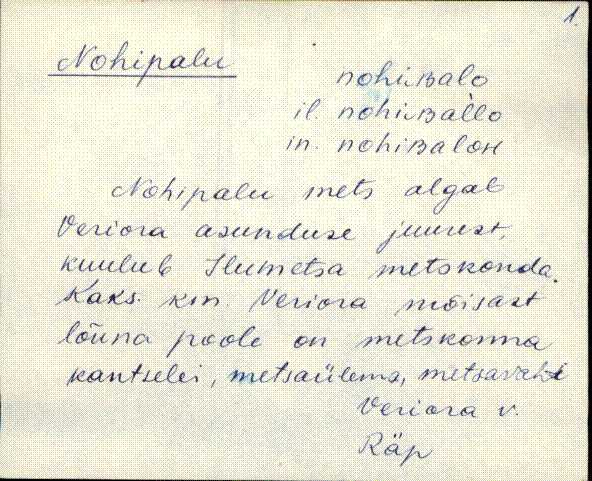 1.
Nohipalu
nohiʙalo
il. nohiʙal̀lo
in. nohiʙaloн
Nohipalu mets algab
Veriora asunduse juurest,
kuulub Ilumetsa metskonda.
Kaks km. Veriora mõisast
lõuna poole on metskonna
kantselei, metsaülema, metsavaht
Veriora v.
Räp